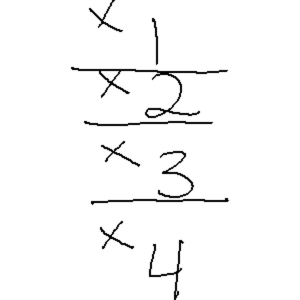 x 1
x 2
x 3
x 4